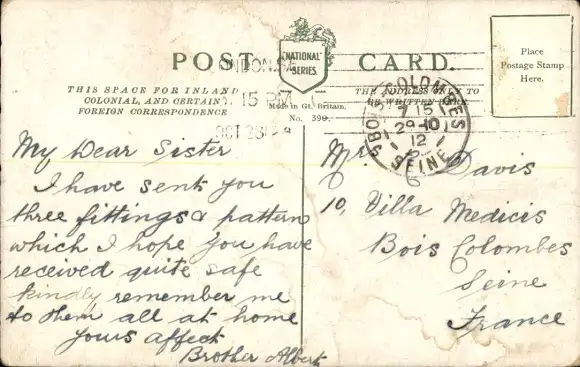 POST CARD.
NATIONAL
SERIES.
THIS SPACE FOR INLAND
COLONIAL, AND CERTAIN
FOREIGN CORRESPONDENCE
Made in Gt. Britain.
No. 390.
THE ADDRESS ONLY TO
BE WRITTEN HERE
Place
Postage Stamp
Here.
LONDON. S.E
.15 PM
OCT 28
BOIS-COLOMBES
7 15
29-10
12
SEINE
My Dear Sister
I have sent you
three fittings & pattern
which I hope you have
received quite safe
kindly remember me
to them all at home
yours affect
Brother Albert
Mrs Davis
10, Villa Medicis
Bois Colombes
Seine
France